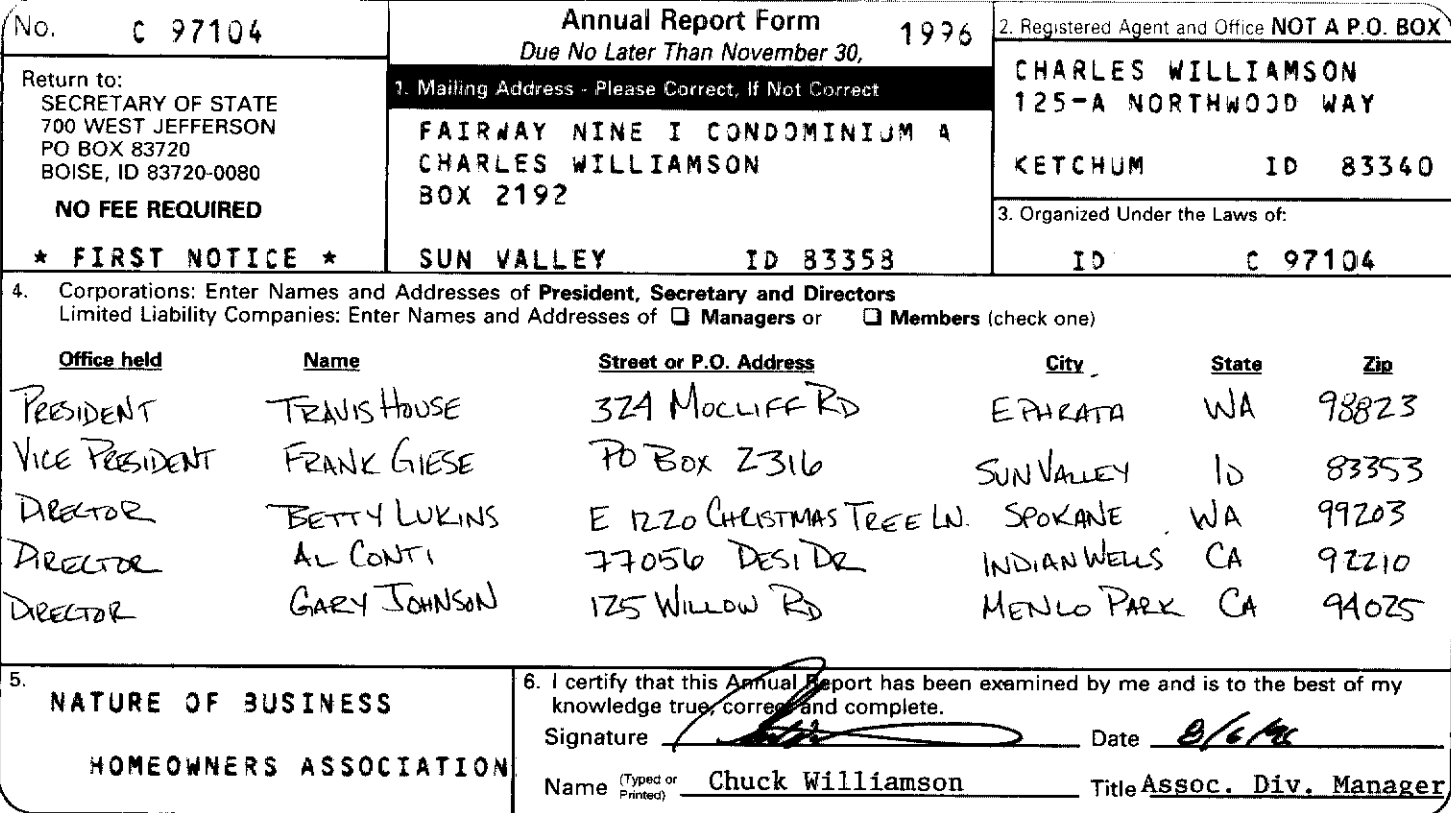 No. C 97104
Annual Report Form 1996
Due No Later Than November 30,
Return to:
SECRETARY OF STATE
700 WEST JEFFERSON
PO BOX 83720
BOISE, ID 83720-0080
NO FEE REQUIRED
* FIRST NOTICE *
1. Mailing Address - Please Correct, If Not Correct
FAIRWAY NINE I CONDOMINIUM A
CHARLES WILLIAMSON
BOX 2192
SUN VALLEY ID 83358
2. Registered Agent and Office NOT A P.O. BOX
CHARLES WILLIAMSON
125-A NORTHWOOD WAY
KETCHUM ID 83340
3. Organized Under the Laws of:
ID C 97104
4. Corporations: Enter Names and Addresses of President, Secretary and Directors
Limited Liability Companies: Enter Names and Addresses of ❑ Managers or ❑ Members (check one)
Office held Name Street or P.O. Address City State Zip
PRESIDENT TRAVIS HOUSE 324 MOCLIFF RD EPHRATA WA 98823
VICE PRESIDENT FRANK GIESE PO BOX 2316 SUN VALLEY ID 83353
DIRECTOR BETTY LUKINS E 1220 CHRISTMAS TREE LN. SPOKANE WA 99203
DIRECTOR AL CONTI 77056 DESI DR INDIAN WELLS CA 92210
DIRECTOR GARY JOHNSON 125 WILLOW RD MENLO PARK CA 94025
5. NATURE OF BUSINESS
HOMEOWNERS ASSOCIATION
6. I certify that this Annual Report has been examined by me and is to the best of my
knowledge true, correct and complete.
Signature Date 8/6/96
Name (Typed or Printed) Chuck Williamson Title Assoc. Div. Manager